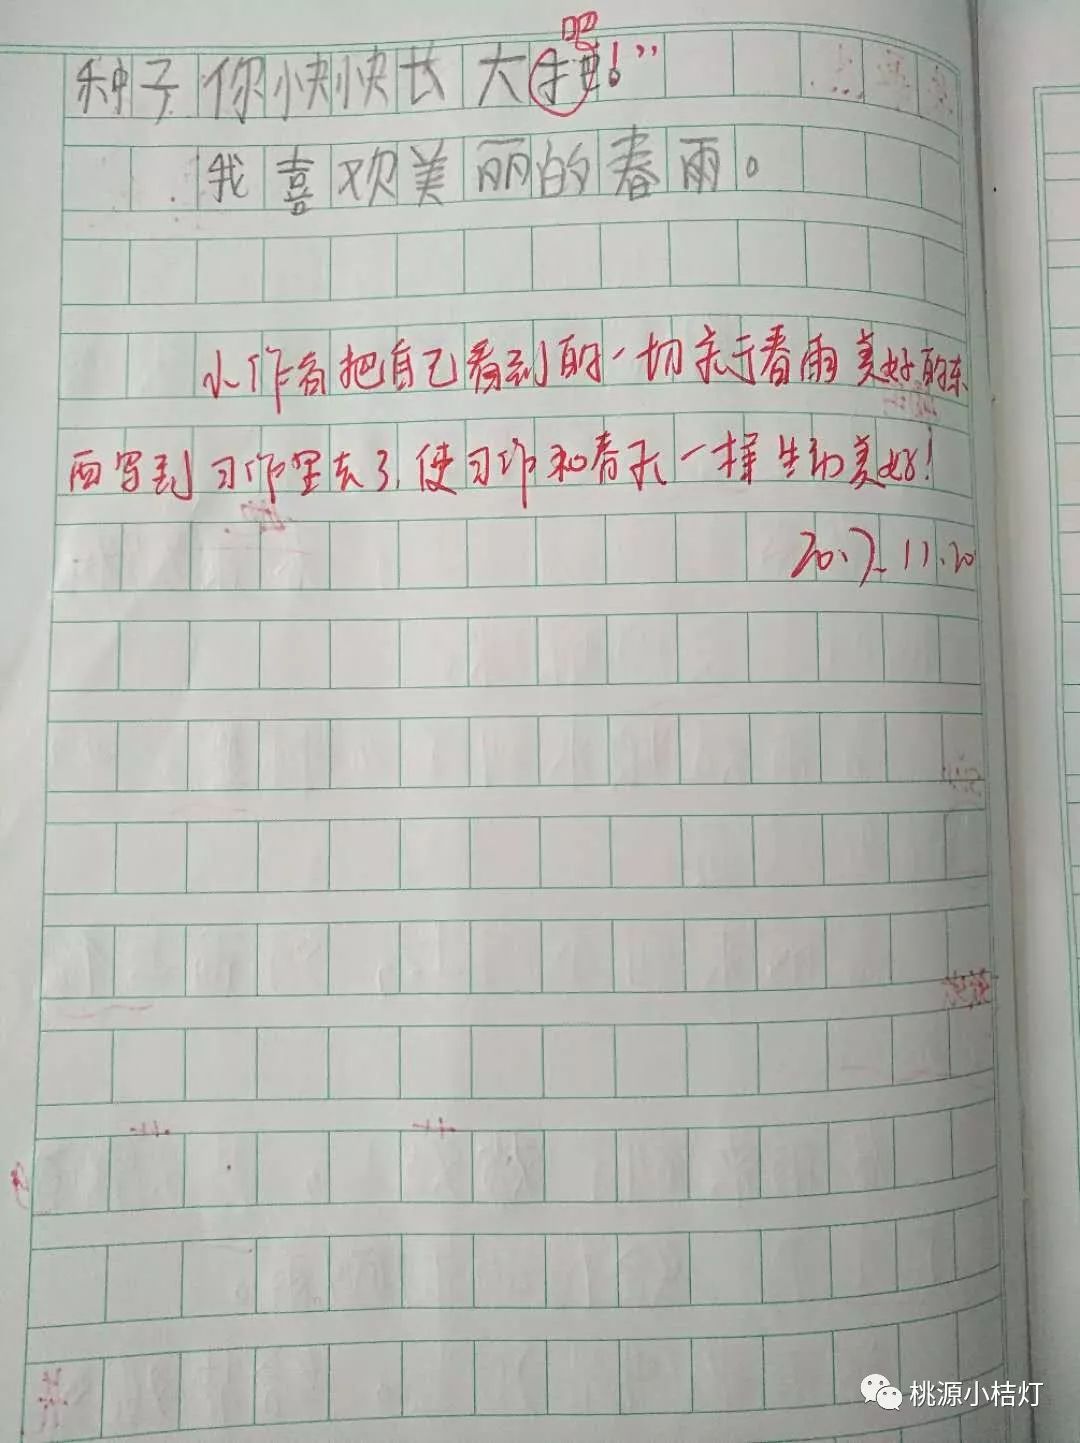 吧
种子你快快长大把！”
我喜欢美丽的春雨。
小作者把自己看到的一切关于春雨美好的东
西写到习作里去了,使习作和春天一样生动美好!
2017.11.20
桃源小桔灯